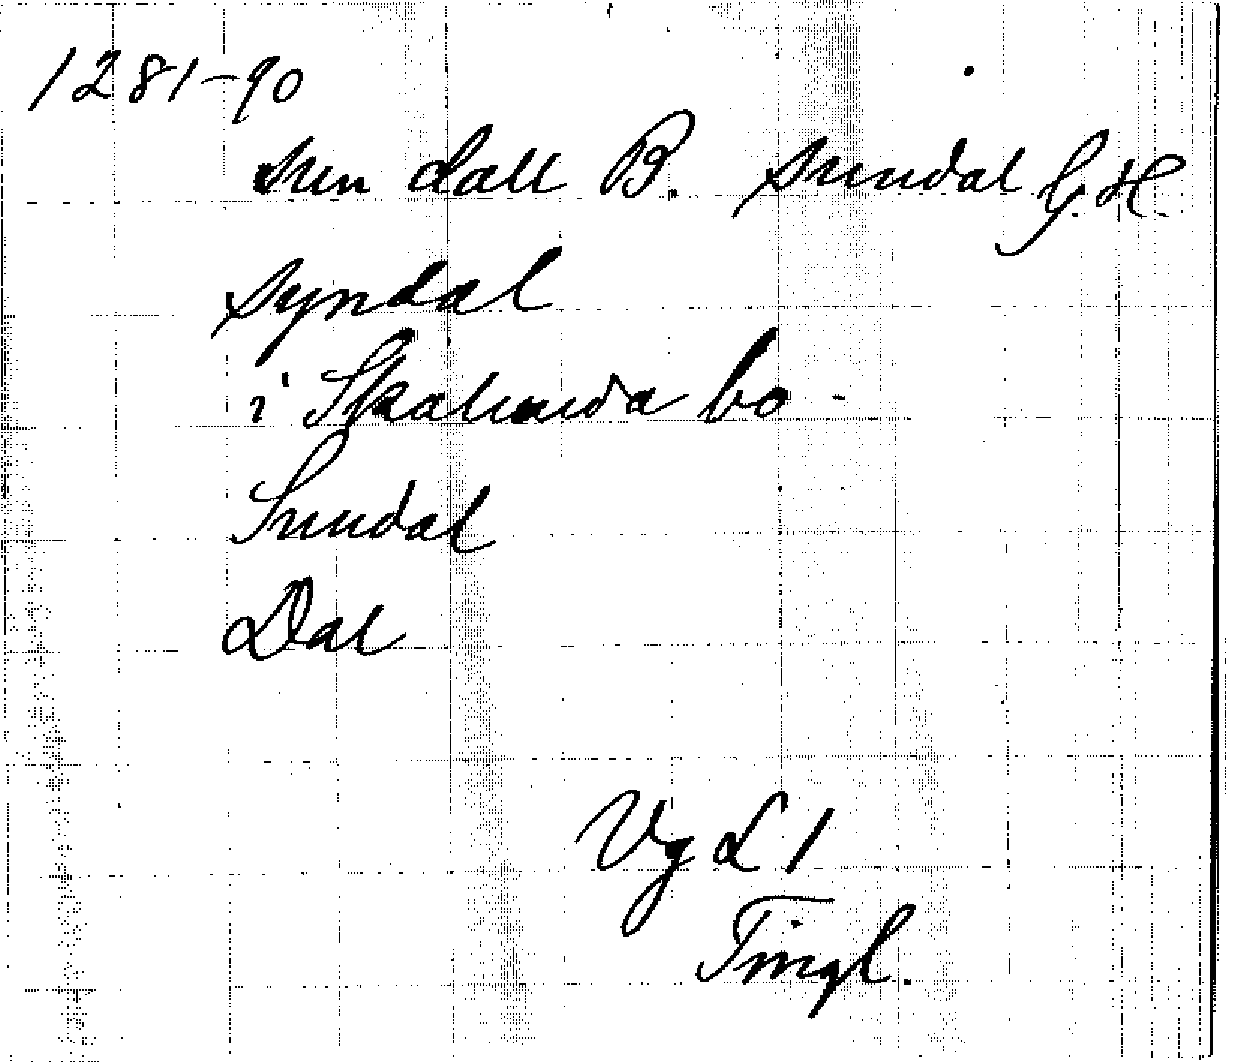 1281-90
sun dall B. sundal G.H.
syndal
i Skalunda bo
Sundal
Dal
Vg L 1
Tingl.